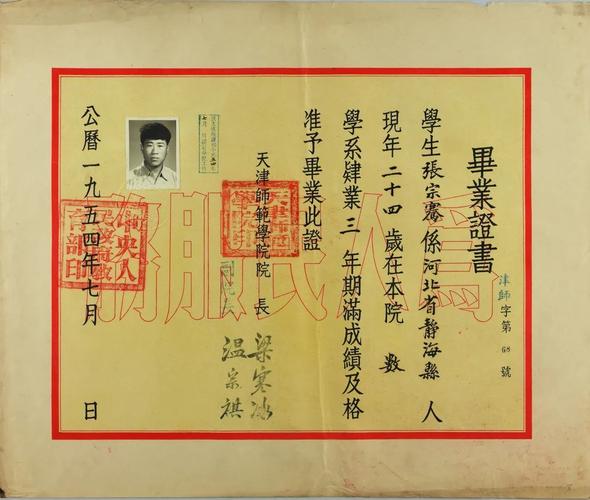 畢業證書
津師字第68號
學生張宗騫係河北省靜海縣人
現年二十四歲在本院數
學系肄業三年期滿成績及格
准予畢業此證
天津師範學院院長
梁寒冰
副院長
温宗祺
公曆一九五四年七月 日
為人民服務
中央人民政府教育部印